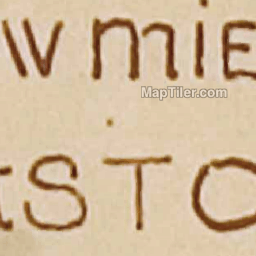 WMIE
MapTiler.com
STO